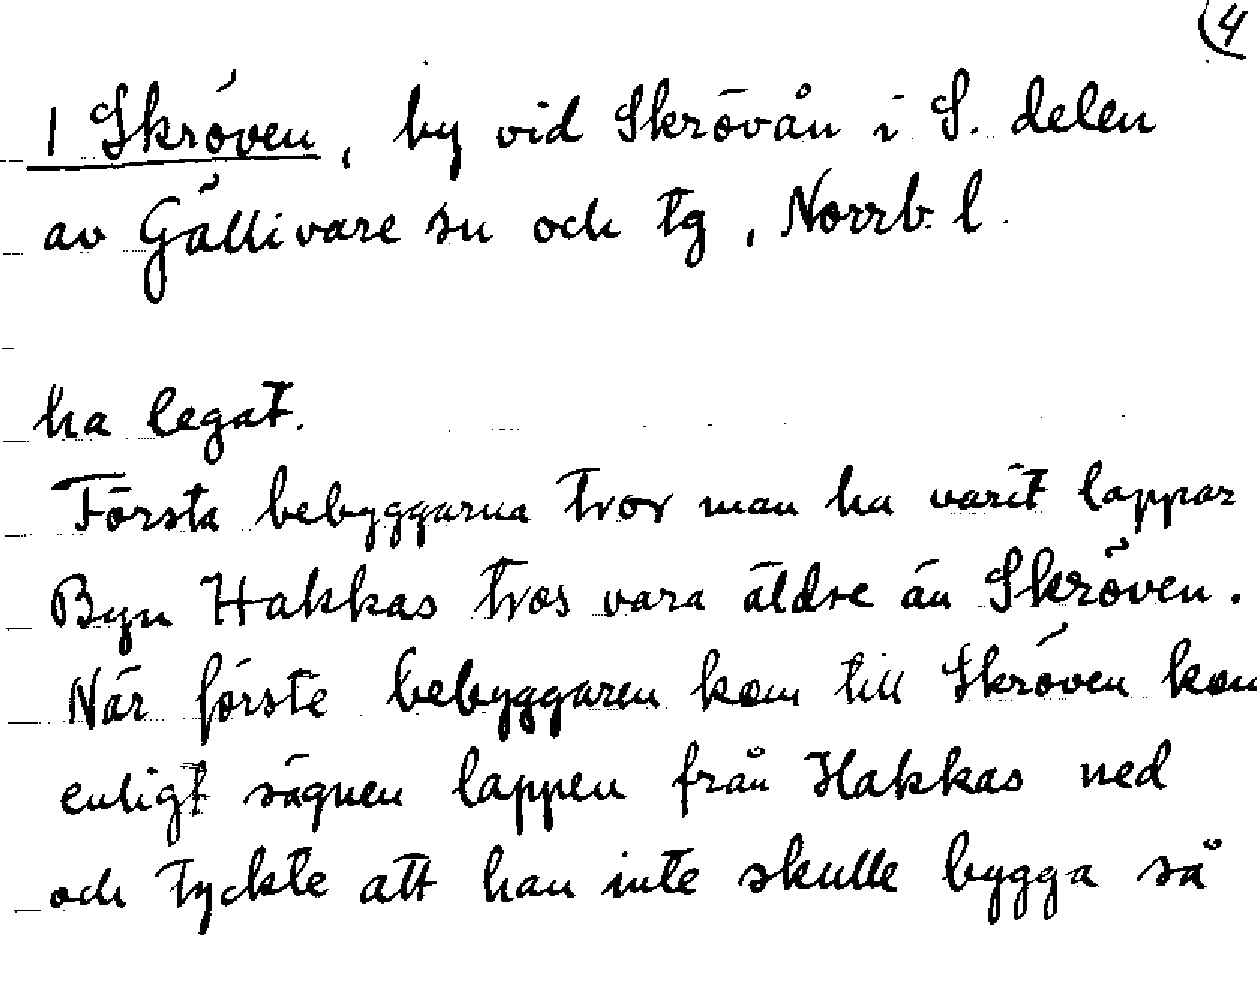 4
1 Skröven, by vid Skrövån i S. delen
av Gällivare sn och tg, Norrb. l.
ha legat.
Första bebyggarna tror man ha varit lappar
Byn Hakkas tros vara äldre än Skröven.
När förste bebyggaren kom till Skröven kom
enligt sägnen lappen från Hakkas ned
och tyckte att han inte skulle bygga så